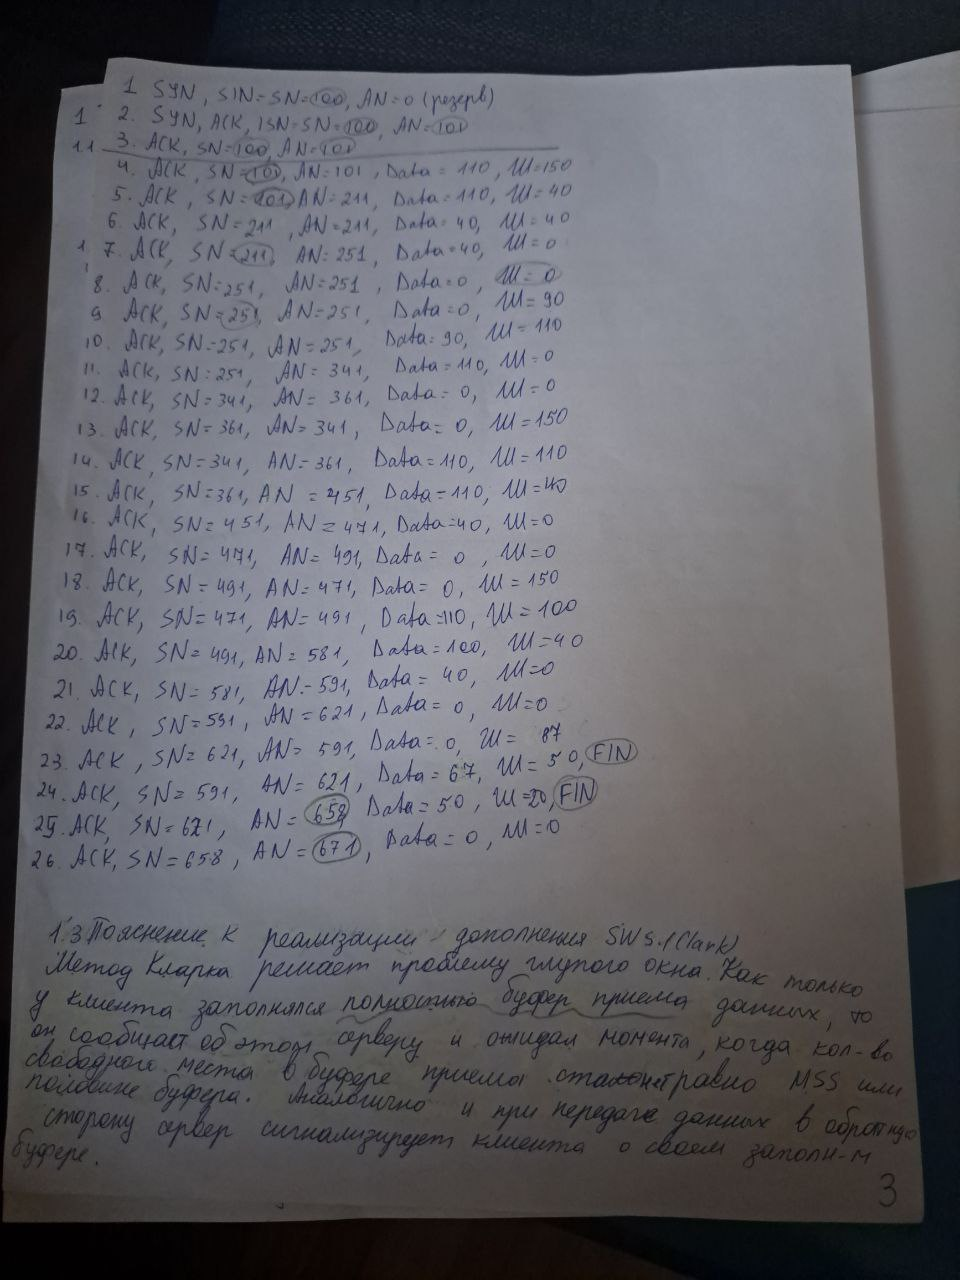 1 SYN, SIN=SN=100, AN=0 (резерв)
1 2. SYN, ACK, ISN=SN=100, AN=101
1.1 3. ACK, SN=100, AN=101
4. ACK, SN=101, AN=101, Data=110, Ш=150
5. ACK, SN=101, AN=211, Data=110, Ш=40
6. ACK, SN=211, AN=211, Data=40, Ш=40
1. 7. ACK, SN=211, AN=251, Data=40, Ш=0
8. ACK, SN=251, AN=251, Data=0, Ш=0
9 ACK, SN=251, AN=251, Data=0, Ш=90
10. ACK, SN=251, AN=251, Data=90, Ш=110
11. ACK, SN=251, AN=341, Data=110, Ш=0
12. ACK, SN=341, AN=361, Data=0, Ш=0
13. ACK, SN=361, AN=341, Data=0, Ш=150
14. ACK, SN=341, AN=361, Data=110, Ш=110
15. ACK, SN=361, AN=451, Data=110, Ш=40
16. ACK, SN=451, AN=471, Data=40, Ш=0
17. ACK, SN=471, AN=491, Data=0, Ш=0
18. ACK, SN=491, AN=471, Data=0, Ш=150
19. ACK, SN=471, AN=491, Data=110, Ш=100
20. ACK, SN=491, AN=581, Data=100, Ш=40
21. ACK, SN=581, AN=591, Data=40, Ш=0
22. ACK, SN=591, AN=621, Data=0, Ш=0
23. ACK, SN=621, AN=591, Data=0, Ш=87
24. ACK, SN=591, AN=621, Data=67, Ш=50, FIN
25. ACK, SN=621, AN=658, Data=50, Ш=20, FIN
26. ACK, SN=658, AN=671, Data=0, Ш=0
1.3 Пояснение к реализации дополнения SWS.(Clark)
Метод Кларка решает проблему глупого окна. Как только
у клиента заполнялся полностью буфер приема данных, то
он сообщает об этом серверу и ожидал момента, когда кол-во
свободного места в буфере приема станет равно MSS или
половине буфера. Аналогично и при передаче данных в обратную
сторону сервер сигнализирует клиента о своем заполн-м
буфере.
3